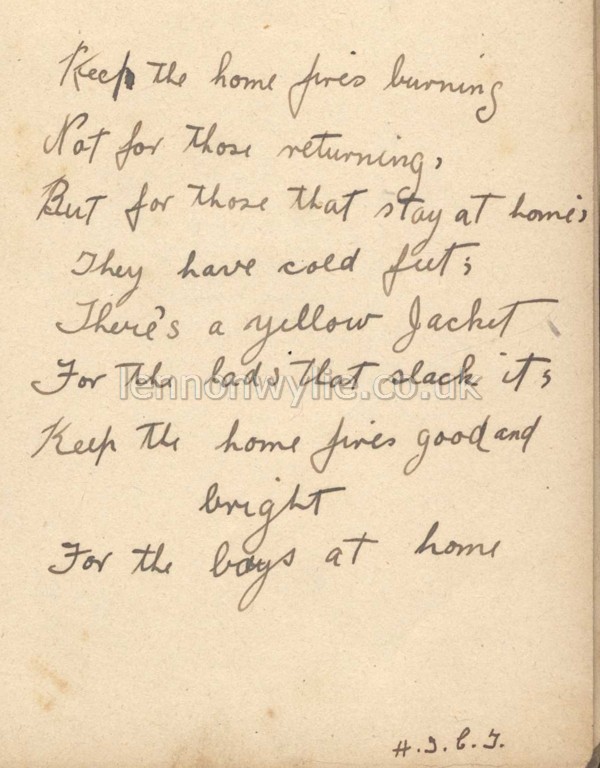 Keep the home fires burning
Not for those returning,
But for those that stay at home;
They have cold feet;
There's a yellow Jacket
For the lads that slack it;
lennonwylie.co.uk
Keep the home fires good and
bright
For the boys at home
H.J.C.J.